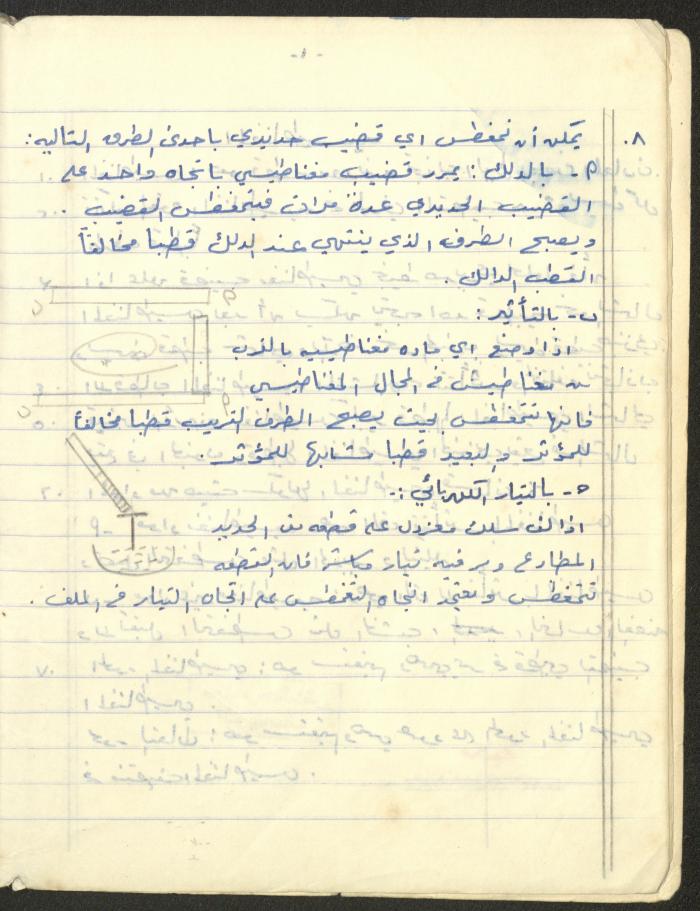 - ١ -
٨. يمكن أن نمغطس اي قضيب حديدي باحدى الطرق التاليه:
P - بالدلك: يمرر قضيب مغناطيسي باتجاه واحد على
القضيب الحديدي عدة مرات فيتمغطس القضيب ..
ويصبح الطرف الذي ينتهي عند الدلك قطباً مخالفاً
القطب الدالك.
ب - بالتأثير:
اذا وضع اي ماده مغناطيسيه بالقرب
من مغناطيس في المجال المغناطيسي
فانها تتمغطس بحيث يصبح الطرف القريب قطبا مخالفاً
للمؤثر والبعيد قطبا مشابها للمؤثر.
ح - بالتيار الكهربائي:-
اذا لف سلك معزول على قطعه من الحديد
المطاوع ومر فيه تيار مباشر فان القطعه
تتمغطس ويعتمد اتجاه التمغطس على اتجاه التيار في الملف.